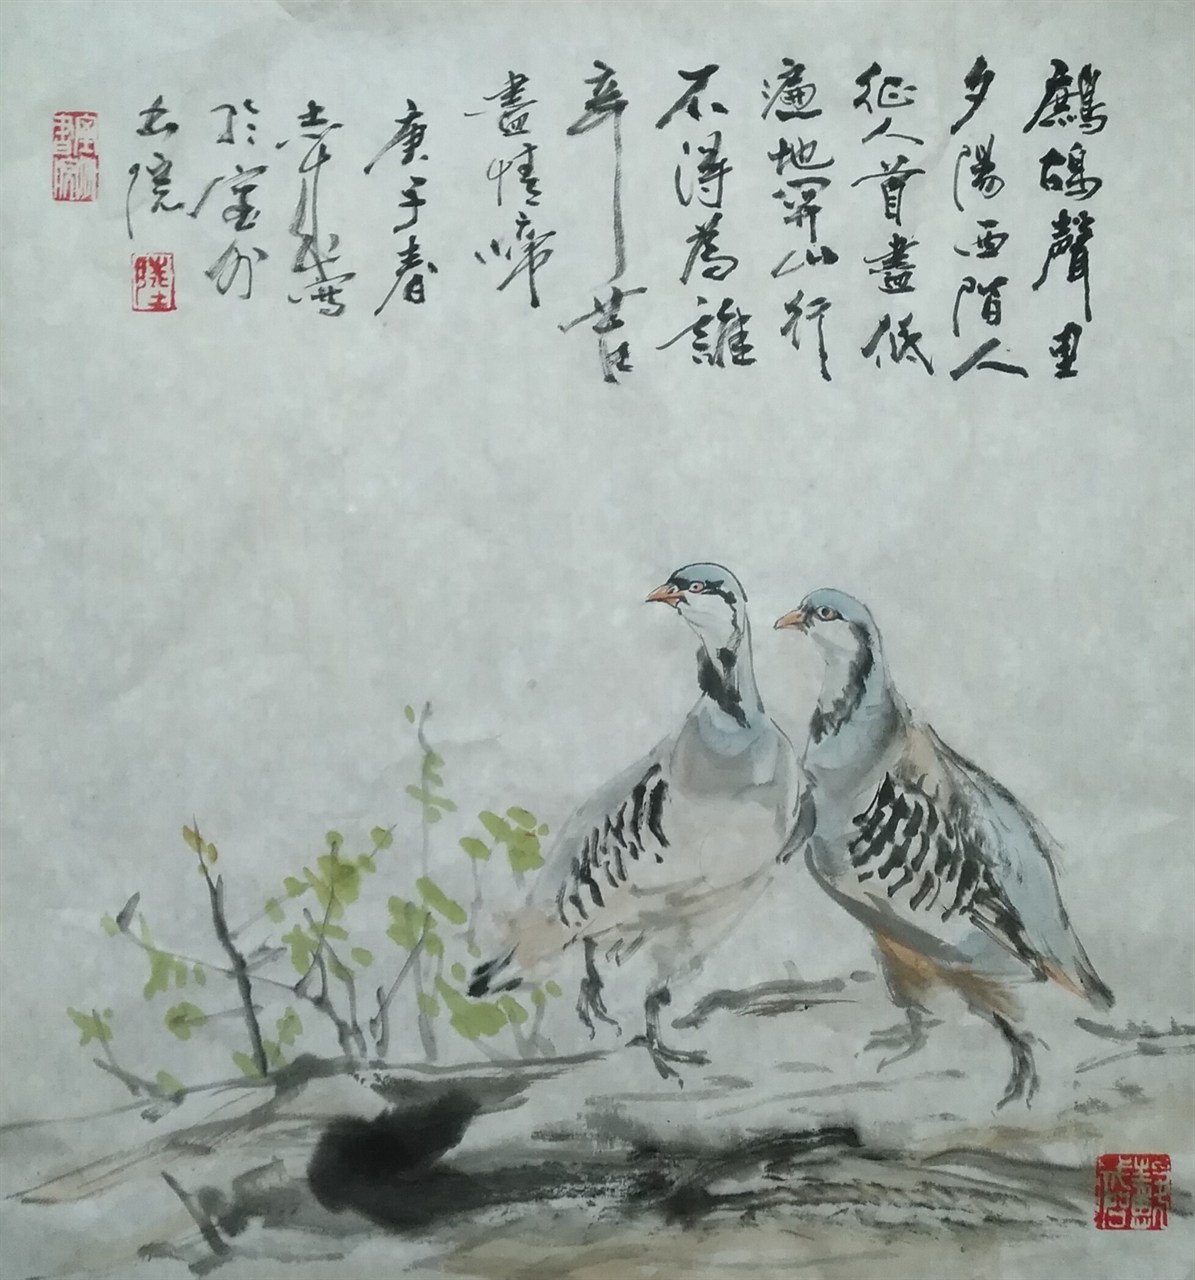 鷓鴣聲里
夕陽西陌人
征人首盡低
遍地關山行
不得為誰
辛苦
盡情啼
庚子春
志華寫
於
書院
陸